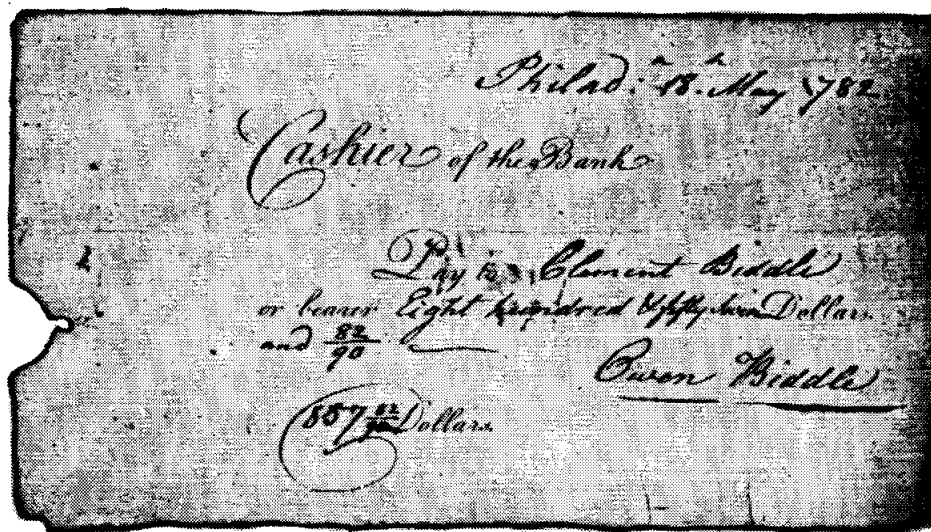 Philad.ª 18.ʰ May 1782
Cashier of the Bank
Pay to Clement Biddle
or bearer Eight hundred & fifty seven Dollars
and 82/90
Owen Biddle
857 82/90 Dollars